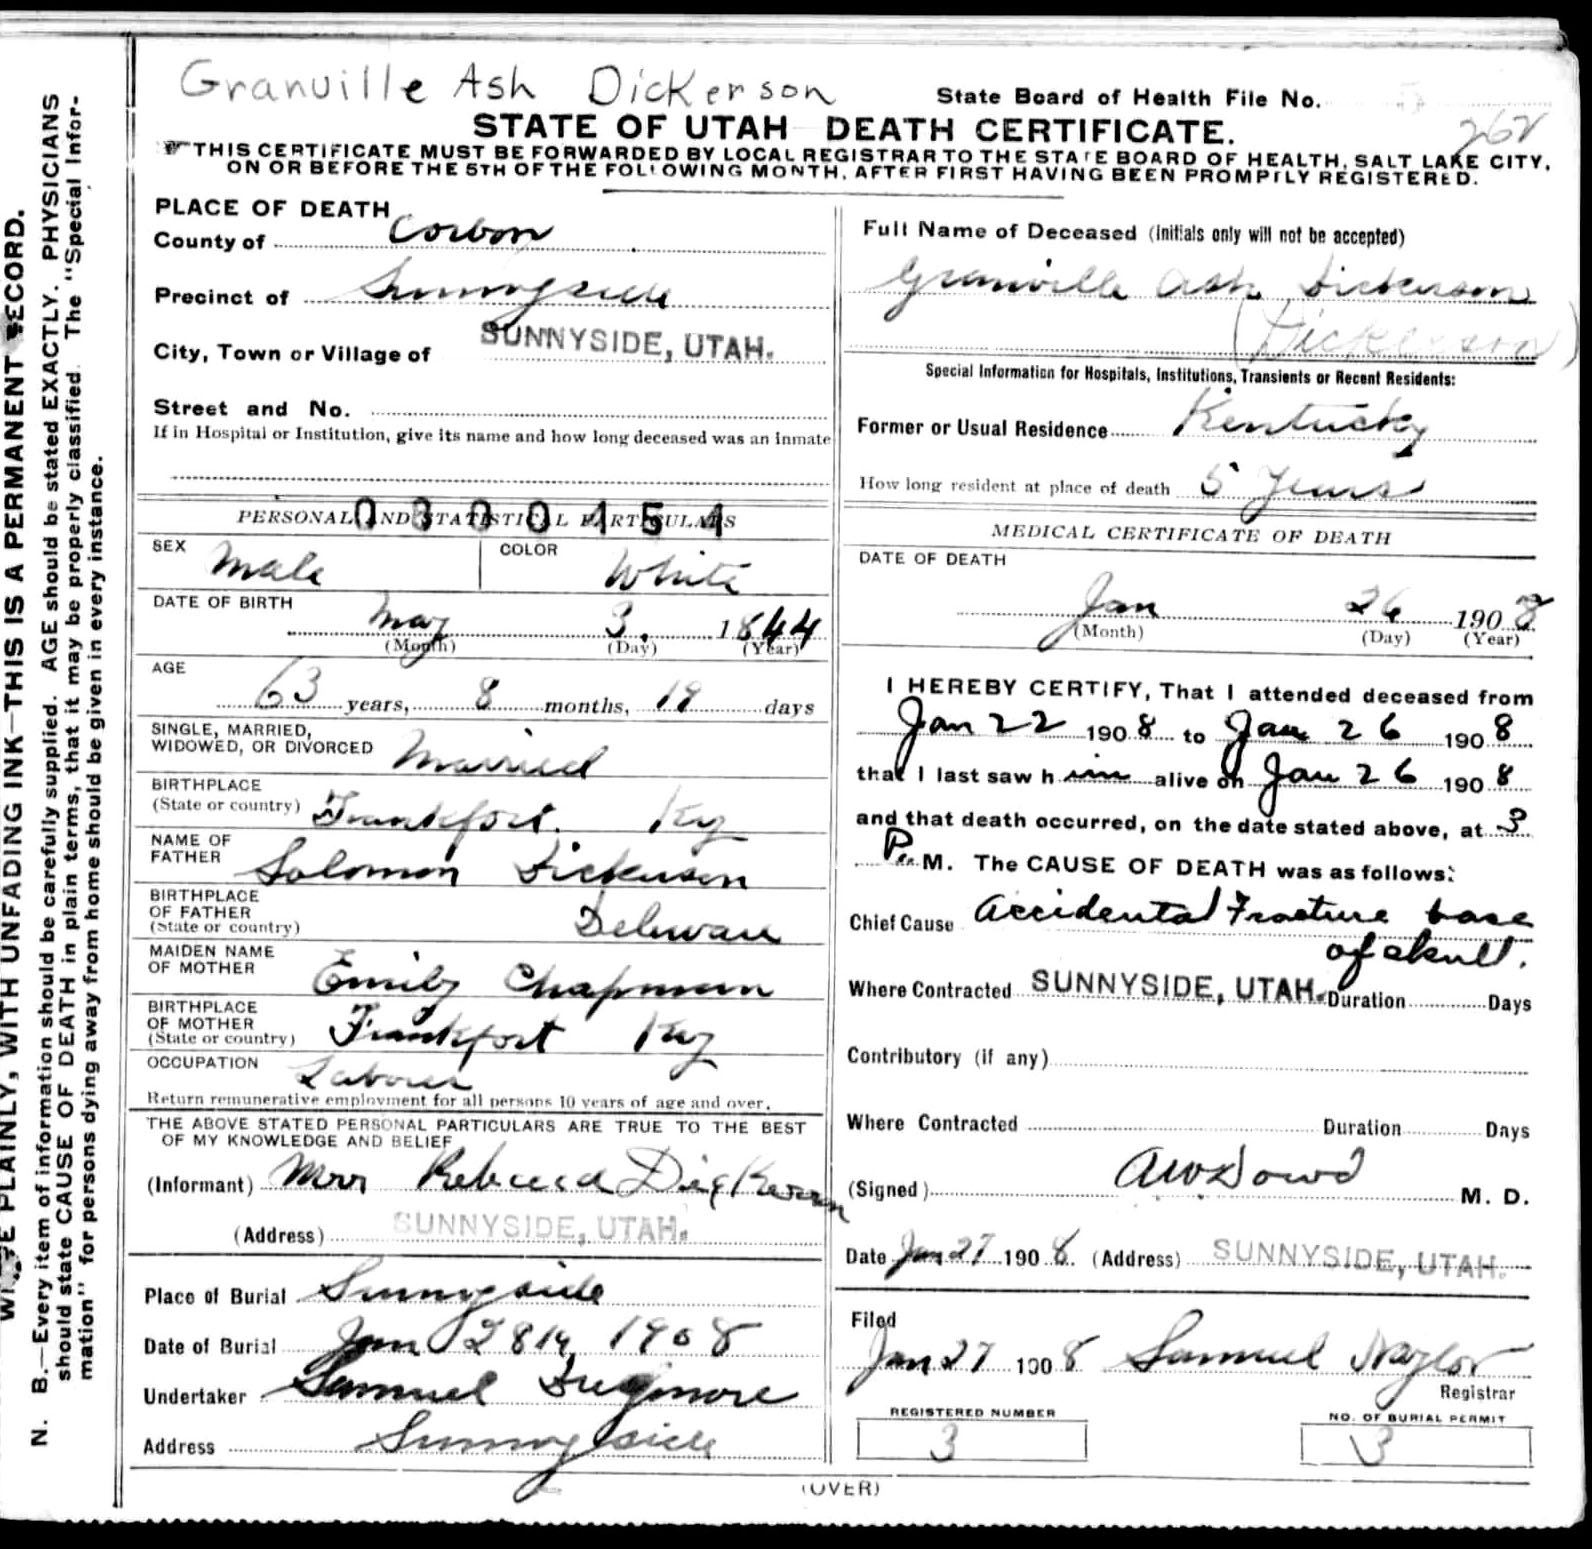 WRITE PLAINLY, WITH UNFADING INK—THIS IS A PERMANENT RECORD.
N. B.—Every item of information should be carefully supplied. AGE should be stated EXACTLY. PHYSICIANS
should state CAUSE OF DEATH in plain terms, that it may be properly classified. The "Special Infor-
mation" for persons dying away from home should be given in every instance.
Granville Ash Dickerson
State Board of Health File No. 262
STATE OF UTAH DEATH CERTIFICATE.
THIS CERTIFICATE MUST BE FORWARDED BY LOCAL REGISTRAR TO THE STATE BOARD OF HEALTH, SALT LAKE CITY,
ON OR BEFORE THE 5TH OF THE FOLLOWING MONTH, AFTER FIRST HAVING BEEN PROMPTLY REGISTERED.
PLACE OF DEATH
County of Corbon
Precinct of Sunnyside
City, Town or Village of SUNNYSIDE, UTAH.
Street and No.
If in Hospital or Institution, give its name and how long deceased was an inmate
0300454
PERSONAL AND STATISTICAL PARTICULARS
SEX Male COLOR White
DATE OF BIRTH May 3, 1844
(Month) (Day) (Year)
AGE 63 years, 8 months, 19 days
SINGLE, MARRIED,
WIDOWED, OR DIVORCED Married
BIRTHPLACE
(State or country) Frankfort. Ky
NAME OF
FATHER Solomon Dickerson
BIRTHPLACE
OF FATHER
(State or country) Delaware
MAIDEN NAME
OF MOTHER Emily Chapman
BIRTHPLACE
OF MOTHER
(State or country) Frankfort Ky
OCCUPATION Laborer
Return remunerative employment for all persons 10 years of age and over.
THE ABOVE STATED PERSONAL PARTICULARS ARE TRUE TO THE BEST
OF MY KNOWLEDGE AND BELIEF
(Informant) Mrs Rebecca Dickerson
(Address) SUNNYSIDE, UTAH.
Place of Burial Sunnyside
Date of Burial Jan 28th 1908
Undertaker Samuel
Address Sunnyside
Full Name of Deceased (Initials only will not be accepted)
Granville Ash Dickerson
(Dickerson)
Special Information for Hospitals, Institutions, Transients or Recent Residents:
Former or Usual Residence Kentucky
How long resident at place of death 5 Years
MEDICAL CERTIFICATE OF DEATH
DATE OF DEATH
Jan 26 1908
(Month) (Day) (Year)
I HEREBY CERTIFY, That I attended deceased from
Jan 22 1908 to Jan 26 1908
that I last saw him alive on Jan 26 1908
and that death occurred, on the date stated above, at 3
P. M. The CAUSE OF DEATH was as follows:
Chief Cause Accidental Fracture base
of skull.
Where Contracted SUNNYSIDE, UTAH. Duration Days
Contributory (if any)
Where Contracted Duration Days
(Signed) AW Dowd M. D.
Date Jan 27 1908. (Address) SUNNYSIDE, UTAH.
Filed
Jan 27 1908 Samuel Naylor
Registrar
REGISTERED NUMBER NO. OF BURIAL PERMIT
3 3
(OVER)